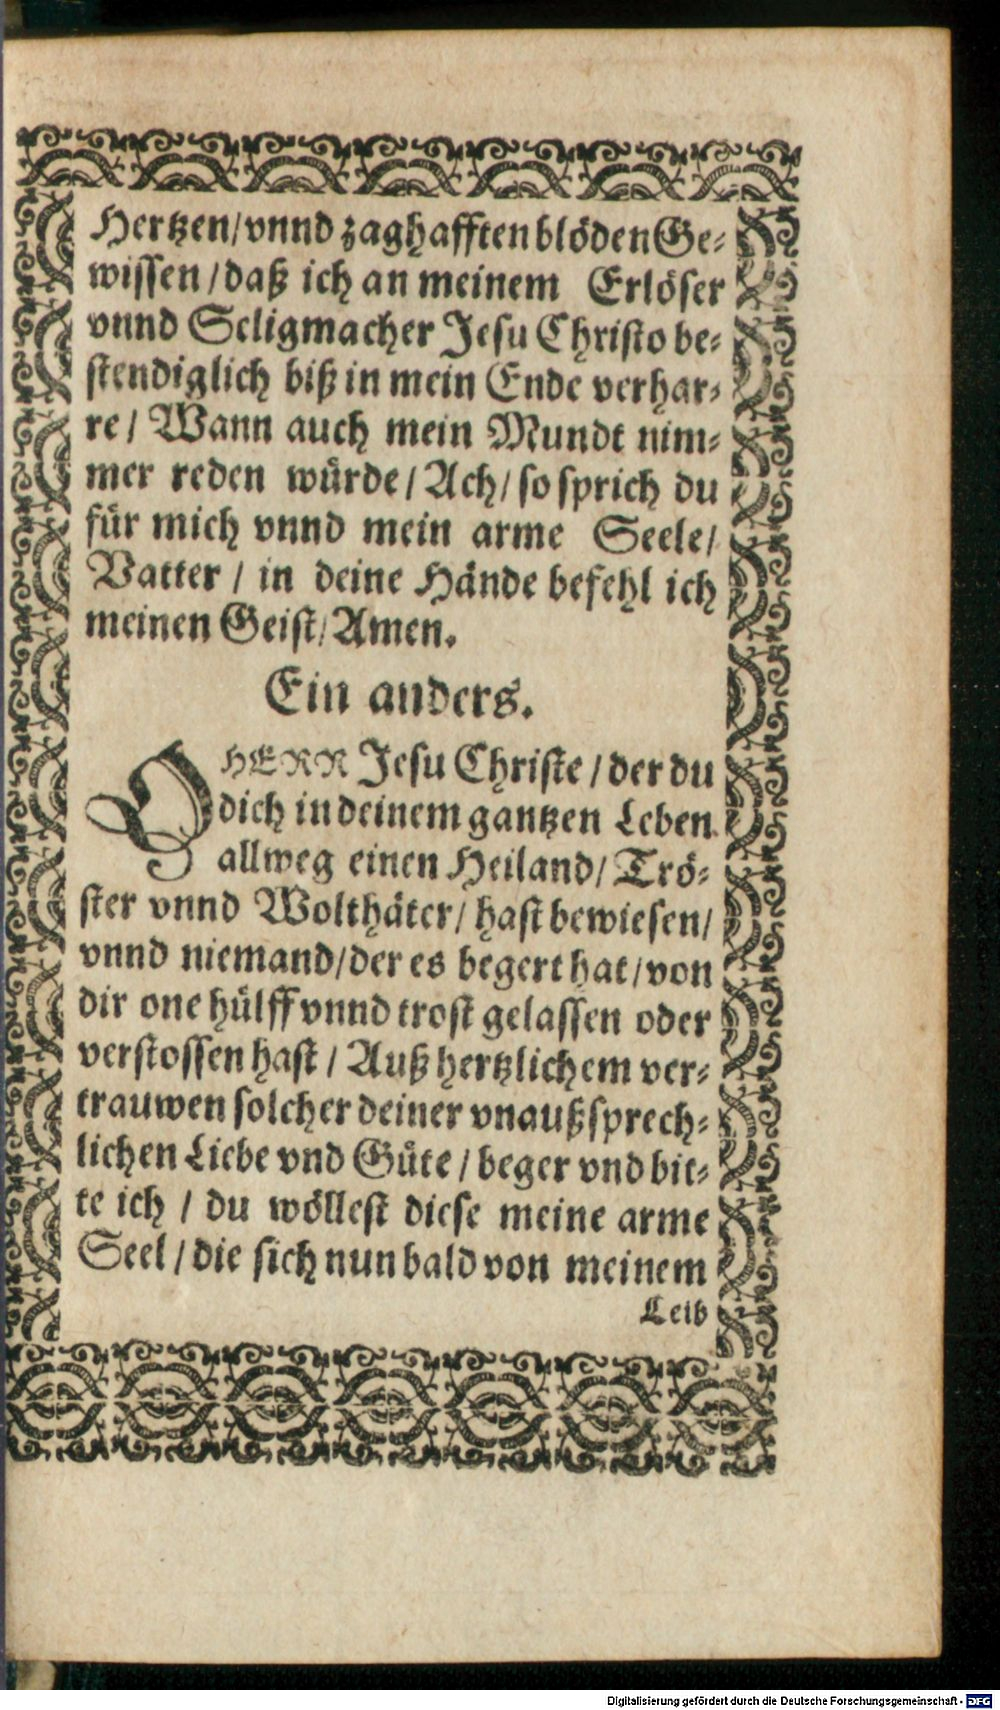 Hertzen/ vnnd zaghafften blöden Ge-
wissen / daß ich an meinem Erlöser
vnnd Seligmacher Jesu Christo be-
stendiglich biß in mein Ende verhar-
re / Wann auch mein Mundt nim-
mer reden würde / Ach / so sprich du
für mich vnnd mein arme Seele /
Vatter / in deine Hände befehl ich
meinen Geist / Amen.
Ein anders.
O HERR Jesu Christe / der du
dich in deinem gantzen Leben
allweg einen Heiland / Trö-
ster vnnd Wolthäter / hast bewiesen /
vnnd niemand / der es begert hat / von
dir one hülff vnnd trost gelassen oder
verstossen hast / Auß hertzlichem ver-
trauwen solcher deiner vnaußsprech-
lichen Liebe vnd Güte / beger vnd bit-
te ich / du wöllest diese meine arme
Seel / die sich nun bald von meinem
Leib
Digitalisierung gefördert durch die Deutsche Forschungsgemeinschaft - DFG